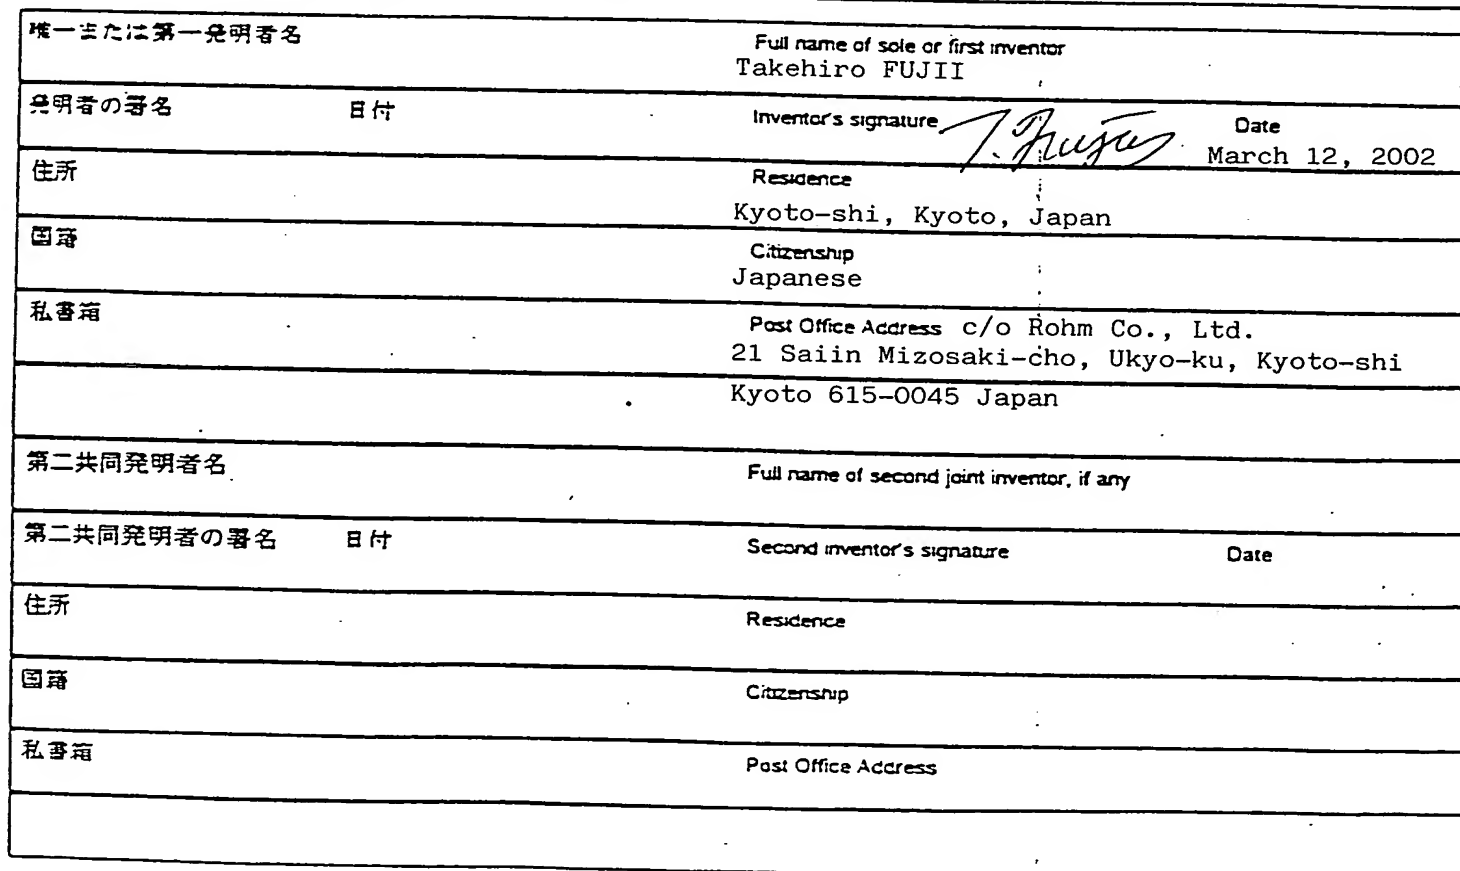 唯一または第一発明者名
Full name of sole or first inventor
Takehiro FUJII
発明者の署名 日付 Inventor's signature T. Fujii Date
March 12, 2002
住所 Residence
Kyoto-shi, Kyoto, Japan
国籍 Citizenship
Japanese
私書箱 Post Office Address c/o Rohm Co., Ltd.
21 Saiin Mizosaki-cho, Ukyo-ku, Kyoto-shi
Kyoto 615-0045 Japan
第二共同発明者名 Full name of second joint inventor, if any
第二共同発明者の署名 日付 Second inventor's signature Date
住所 Residence
国籍 Citizenship
私書箱 Post Office Address